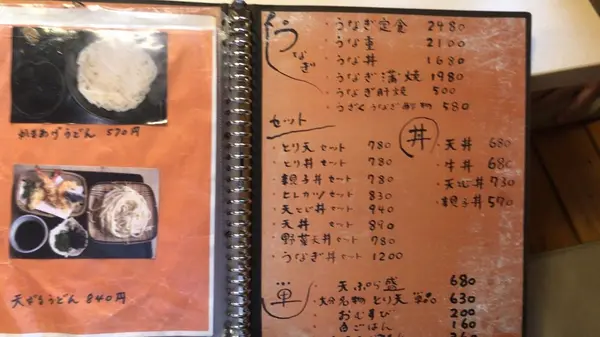 釜あげうどん 570円
天ざるうどん 840円
うなぎ
・うなぎ定食 2480
・うな重 2100
・うな丼 1680
・うなぎ蒲焼 1980
・うなぎ肝焼 500
・うざくうなぎ酢物 580
セット
・とり天セット 780
・とり丼セット 780
・親子丼セット 780
・ヒレカツセット 830
・天とじ丼セット 940
・天丼セット 890
・野菜天丼セット 780
・うなぎ丼セット 1200
丼
・天丼 680
・牛丼 680
・天とじ丼 730
・親子丼 570
単
天ぷら盛 680
・大分名物 とり天 単品 630
・おむすび 200
・白ごはん 160